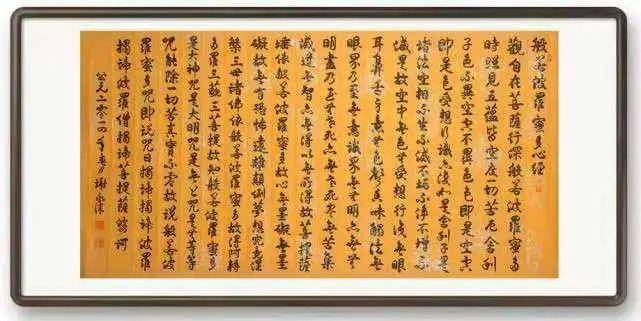 般若波羅蜜多心經
觀自在菩薩行深般若波羅蜜多
時照見五蘊皆空度一切苦厄舍利
子色不異空空不異色色即是空空
即是色受想行識亦復如是舍利子是
諸法空相不生不滅不垢不淨不增不
減是故空中無色無受想行識無眼
耳鼻舌身意無色聲香味觸法無
眼界乃至無意識界無無明亦無無
明盡乃至無老死亦無老死盡無苦集
滅道無智亦無得以無所得故菩提薩
埵依般若波羅蜜多故心無罣礙無罣
礙故無有恐怖遠離顛倒夢想究竟涅
槃三世諸佛依般若波羅蜜多故得阿耨
多羅三藐三菩提故知般若波羅蜜多
是大神咒是大明咒是無上咒是無等等
咒能除一切苦真實不虛故說般若波
羅蜜多咒即說咒曰揭諦揭諦波羅
揭諦波羅僧揭諦菩提薩婆訶
公元二〇一四年